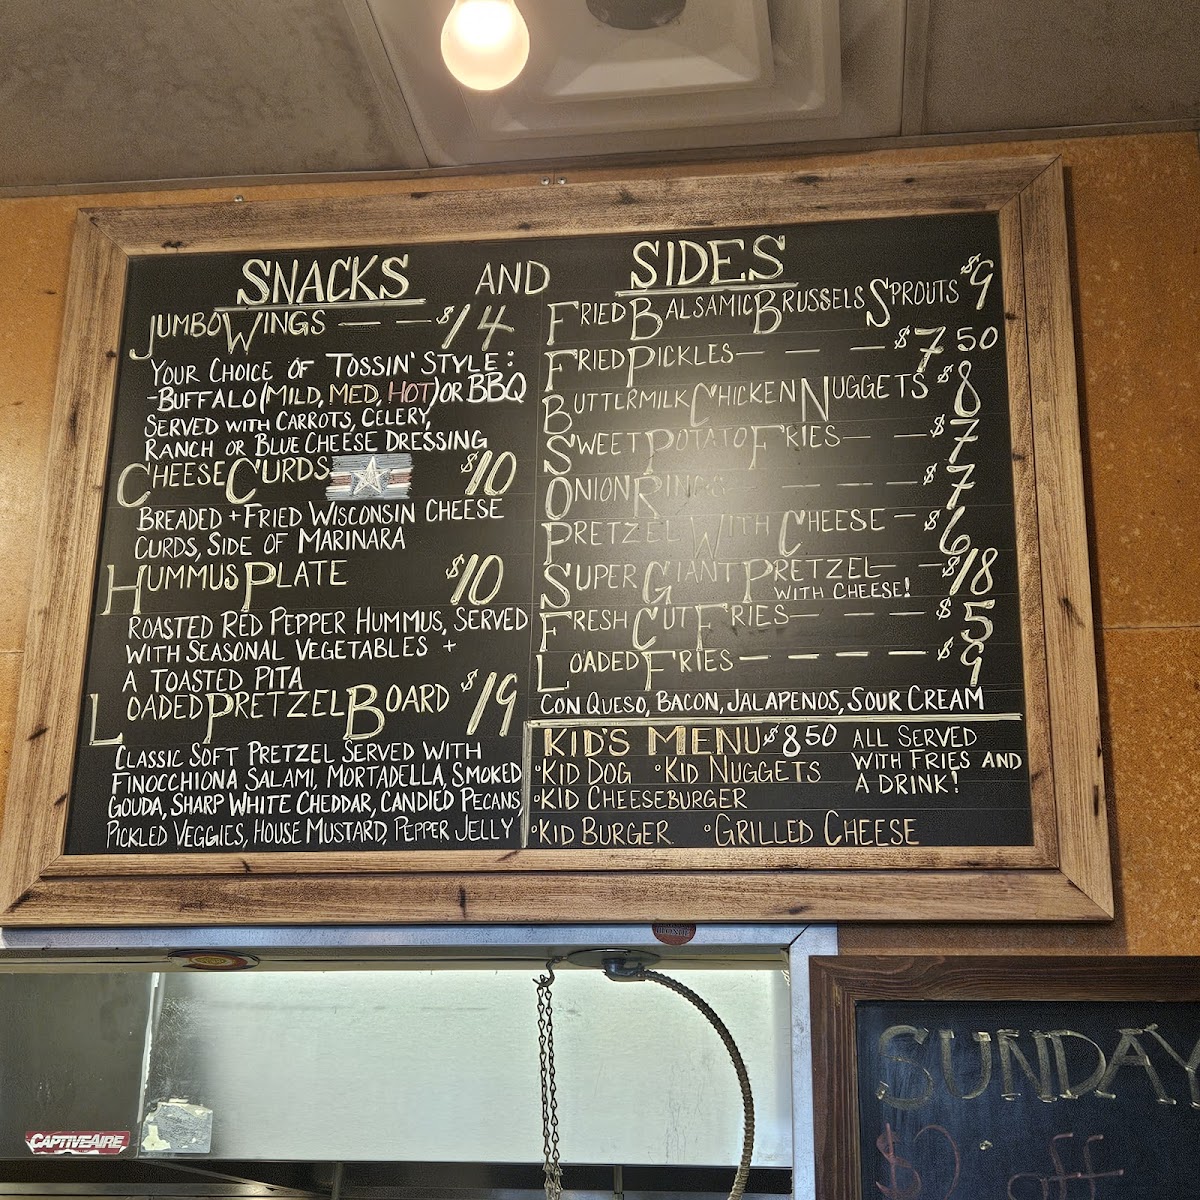 SNACKS AND SIDES
JUMBO WINGS — — — $14
YOUR CHOICE OF TOSSIN' STYLE:
-BUFFALO (MILD, MED, HOT) OR BBQ
SERVED WITH CARROTS, CELERY,
RANCH OR BLUE CHEESE DRESSING
CHEESE CURDS $10
BREADED + FRIED WISCONSIN CHEESE
CURDS, SIDE OF MARINARA
HUMMUS PLATE $10
ROASTED RED PEPPER HUMMUS, SERVED
WITH SEASONAL VEGETABLES +
A TOASTED PITA
LOADED PRETZEL BOARD $19
CLASSIC SOFT PRETZEL SERVED WITH
FINOCCHIONA SALAMI, MORTADELLA, SMOKED
GOUDA, SHARP WHITE CHEDDAR, CANDIED PECANS,
PICKLED VEGGIES, HOUSE MUSTARD, PEPPER JELLY
FRIED BALSAMIC BRUSSELS SPROUTS $9
FRIED PICKLES — — — $7 50
BUTTERMILK CHICKEN NUGGETS $8
SWEET POTATO FRIES — — $7
ONION RINGS — — $7
PRETZEL WITH CHEESE — $6
SUPER GIANT PRETZEL — — $18
WITH CHEESE!
FRESH CUT FRIES — — — $5
LOADED FRIES — — — — $9
CON QUESO, BACON, JALAPENOS, SOUR CREAM
KID'S MENU $8 50 ALL SERVED
WITH FRIES AND
A DRINK!
°KID DOG °KID NUGGETS
°KID CHEESEBURGER
°KID BURGER °GRILLED CHEESE
CAPTIVEAIRE
SUNDAY
$2 off